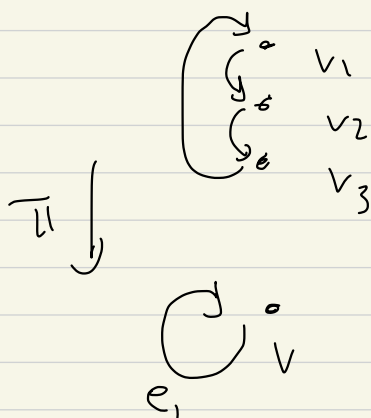 V₁
V₂
V₃
π
V
e₁